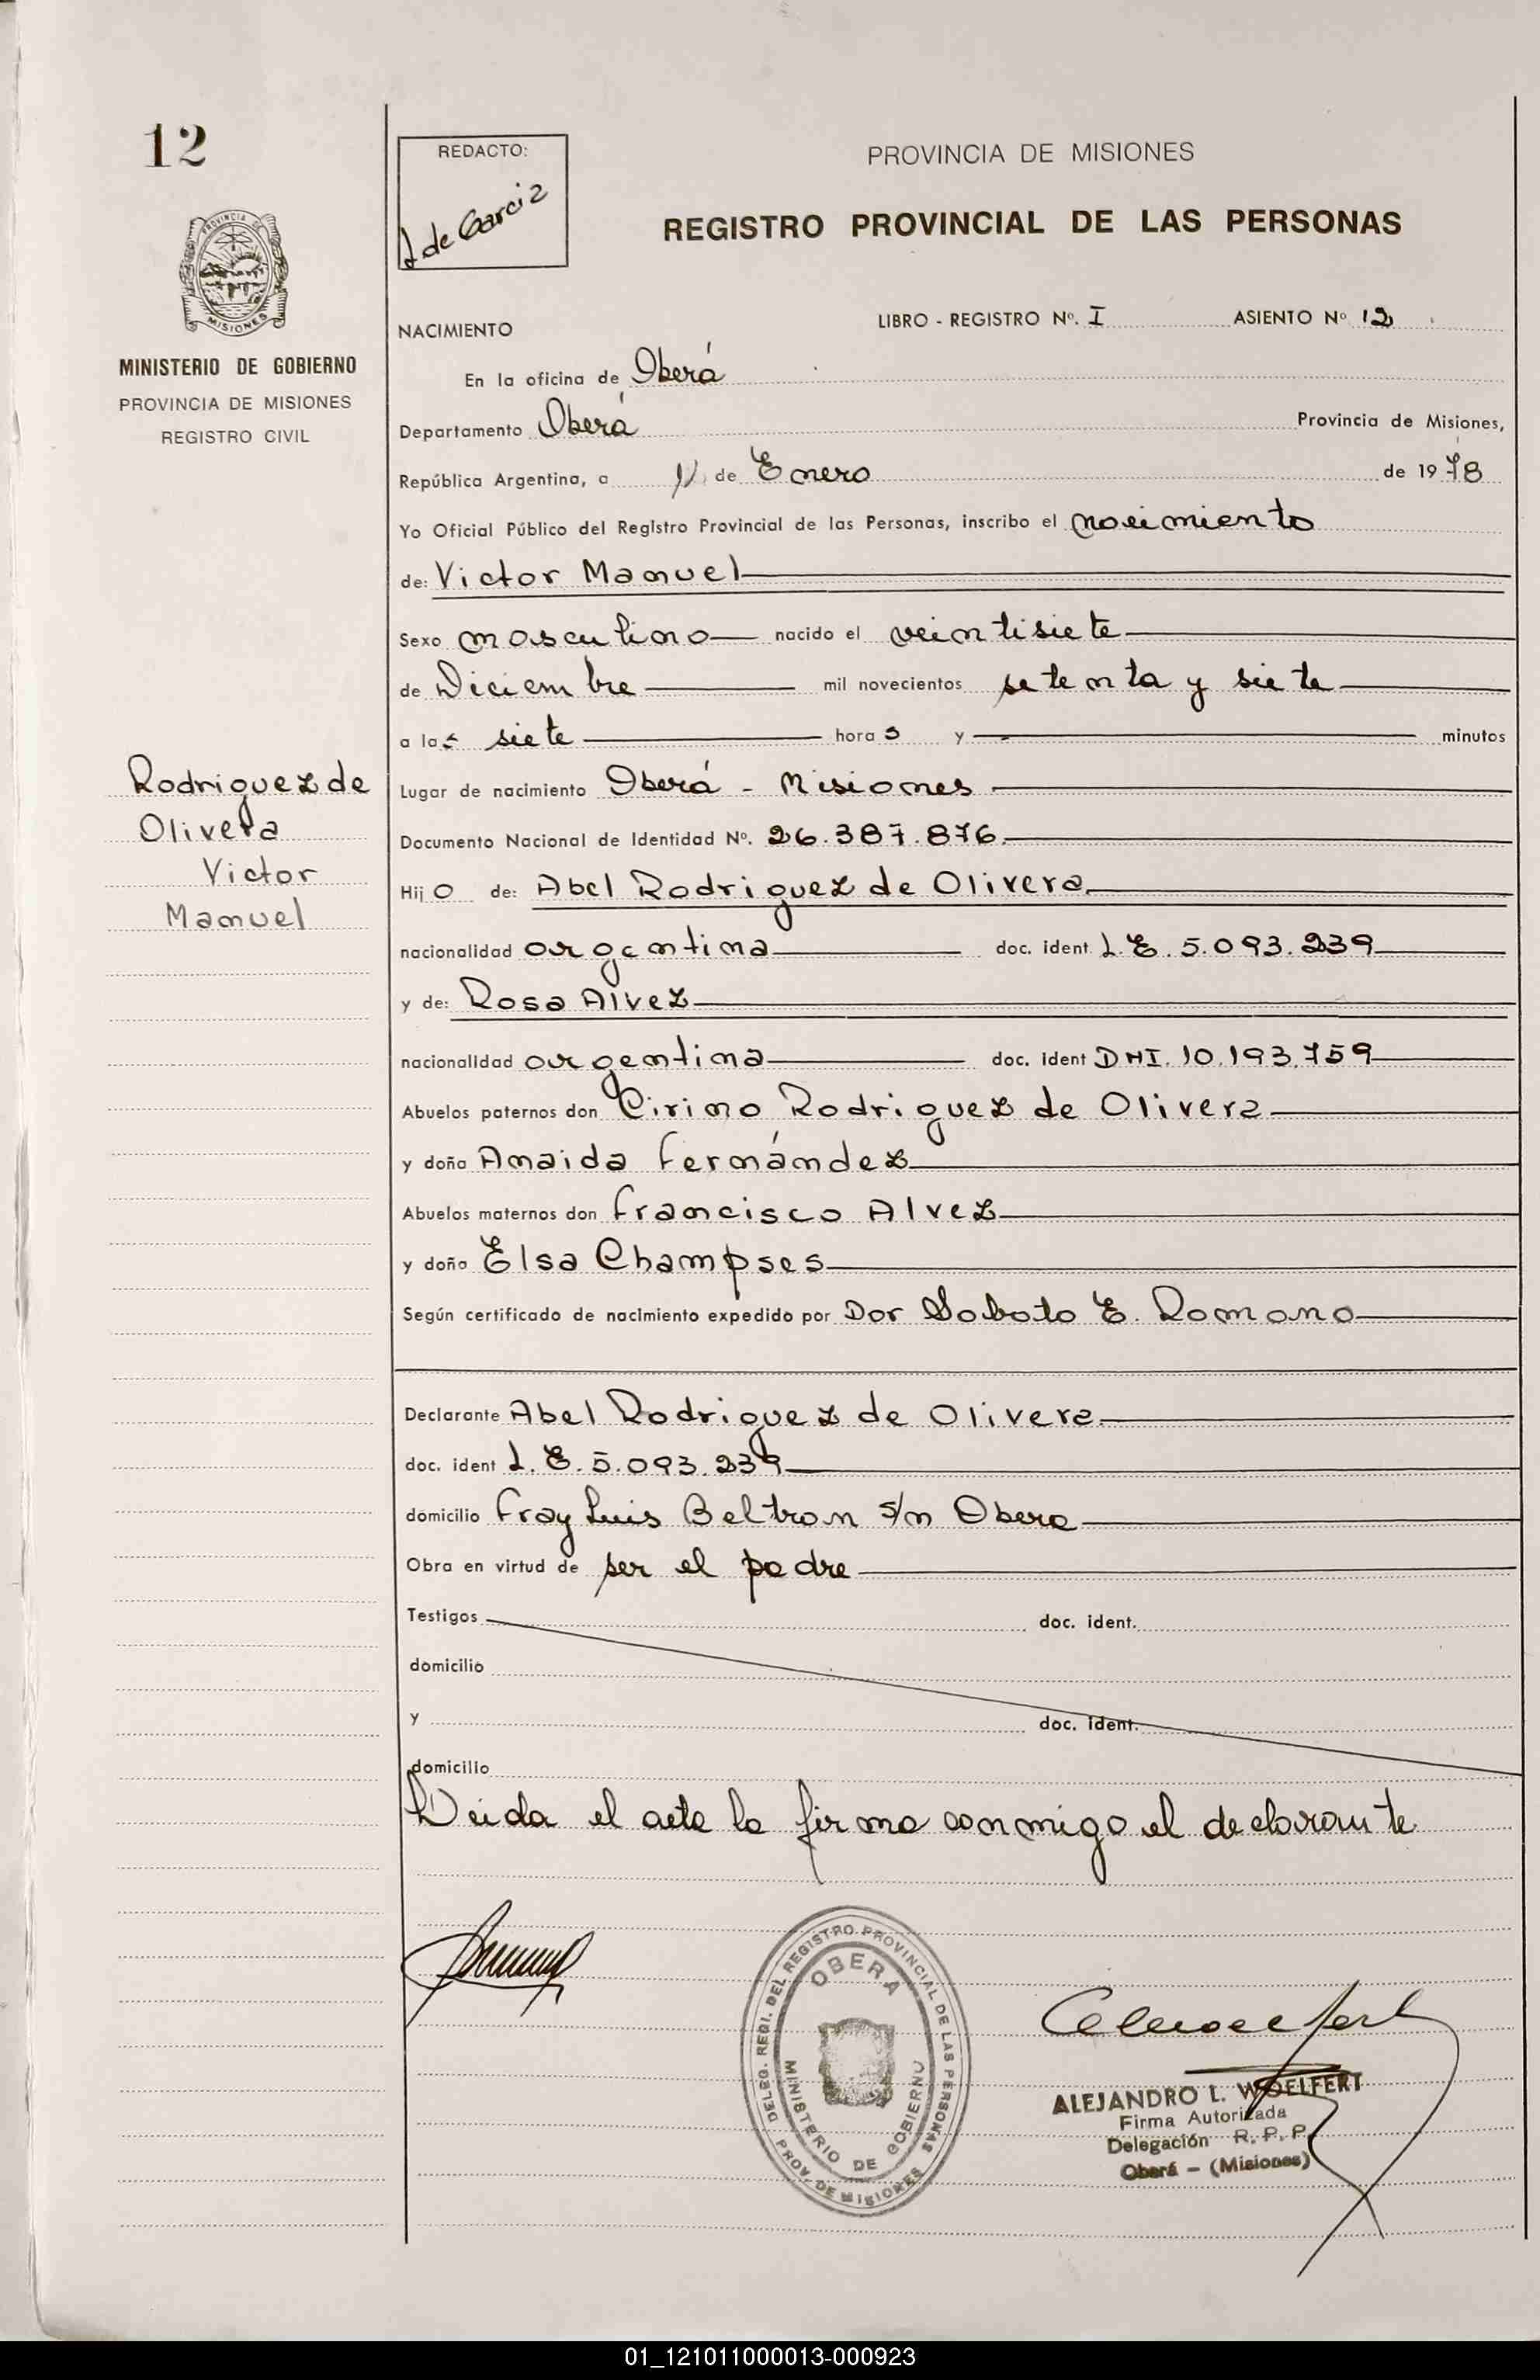 12
REDACTO:
L de Garcia
PROVINCIA DE MISIONES
REGISTRO PROVINCIAL DE LAS PERSONAS
PROVINCIA DE
MISIONES
MINISTERIO DE GOBIERNO
PROVINCIA DE MISIONES
REGISTRO CIVIL
NACIMIENTO
LIBRO - REGISTRO Nº. I ASIENTO Nº 12
En la oficina de Oberá
Departamento Oberá Provincia de Misiones,
República Argentina, a de Enero de 1978
Yo Oficial Público del Registro Provincial de las Personas, inscribo el nacimiento
de: Victor Manuel
Sexo masculino nacido el veintisiete
de Diciembre mil novecientos setenta y siete
a las siete horas y minutos
Rodriguez de
Olivera
Victor
Manuel
Lugar de nacimiento Oberá - Misiones
Documento Nacional de Identidad Nº. 26.387.876
Hijo de: Abel Rodriguez de Olivera
nacionalidad argentina doc. ident. L.E. 5.093.239
y de: Rosa Alvez
nacionalidad argentina doc. ident DNI. 10.193.759
Abuelos paternos don Cirino Rodriguez de Olivera
y doña Anaida Fernández
Abuelos maternos don Francisco Alvez
y doña Elsa Champses
Según certificado de nacimiento expedido por Dor Soboto E. Romano
Declarante Abel Rodriguez de Olivera
doc. ident L.E. 5.093.239
domicilio Fray Luis Beltran s/n Obera
Obra en virtud de ser el padre
Testigos doc. ident.
domicilio
y doc. ident.
domicilio
Leida el acta la firma conmigo el declarante
DELEG. REGI. DEL REGISTRO PROVINCIAL DE LAS PERSONAS
OBERA
MINISTERIO DE GOBIERNO
PROV. DE MISIONES
ALEJANDRO L. WOELFERT
Firma Autorizada
Delegación R. P. P.
Oberá - (Misiones)
01_121011000013-000923